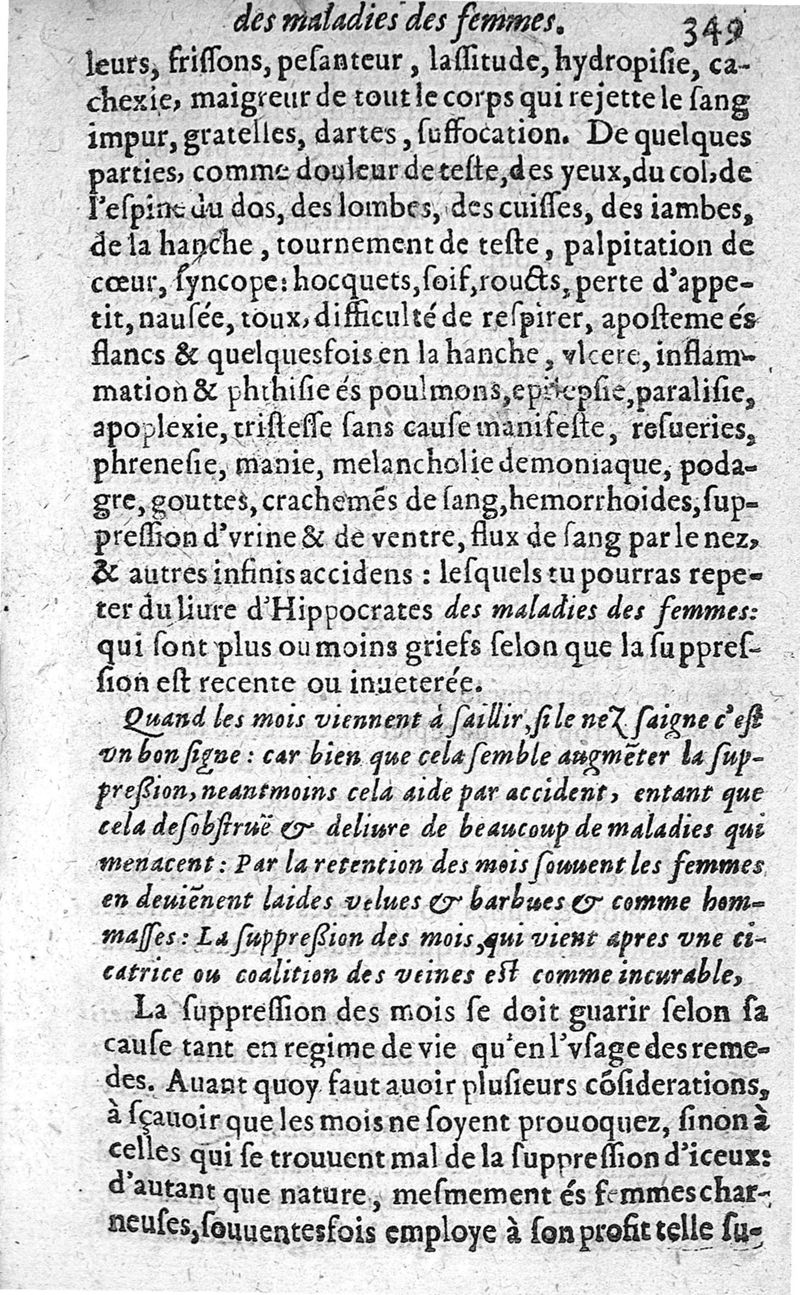 des maladies des femmes. 349
leurs, friſſons, peſanteur, laſſitude, hydropiſie, ca-
chexie, maigreur de tout le corps qui rejette le ſang
impur, gratelles, dartes, ſuffocation. De quelques
parties, comme douleur de teſte, des yeux, du col, de
l'eſpine du dos, des lombes, des cuiſſes, des iambes,
de la hanche, tournement de teſte, palpitation de
cœur, ſyncope: hocquets, ſoif, roucts, perte d'appe-
tit, nauſée, toux, difficulté de reſpirer, apoſteme és
flancs & quelquesfois en la hanche, vlcere, inflam-
mation & phthiſie és poulmons, epilepſie, paraliſie,
apoplexie, triſteſſe ſans cauſe manifeſte, reſueries,
phreneſie, manie, melancholie demoniaque, poda-
gre, gouttes, crachemẽs de ſang, hemorrhoides, ſup-
preſſion d'vrine & de ventre, flux de ſang par le nez,
& autres infinis accidens : leſquels tu pourras repe-
ter du liure d'Hippocrates des maladies des femmes:
qui ſont plus ou moins griefs ſelon que la ſuppreſ-
ſion eſt recente ou inueterée.
Quand les mois viennent à ſaillir, ſi le nez ſaigne c'eſt
vn bon ſigne : car bien que cela ſemble augmẽter la ſup-
preßion, neantmoins cela aide par accident, entant que
cela deſobſtruë & deliure de beaucoup de maladies qui
menacent : Par la retention des mois ſouuent les femmes
en deuiẽnent laides velues & barbues & comme hom-
maſſes : La ſuppreßion des mois, qui vient apres vne ci-
catrice ou coalition des veines eſt comme incurable,
La ſuppreſſion des mois ſe doit guarir ſelon ſa
cauſe tant en regime de vie qu'en l'vſage des reme-
des. Auant quoy faut auoir pluſieurs cõſiderations,
à ſçauoir que les mois ne ſoyent prouoquez, ſinon à
celles qui ſe trouuent mal de la ſuppreſſion d'iceux:
d'autant que nature, meſmement és femmes char-
neuſes, ſouuentesfois employe à ſon profit telle ſu-